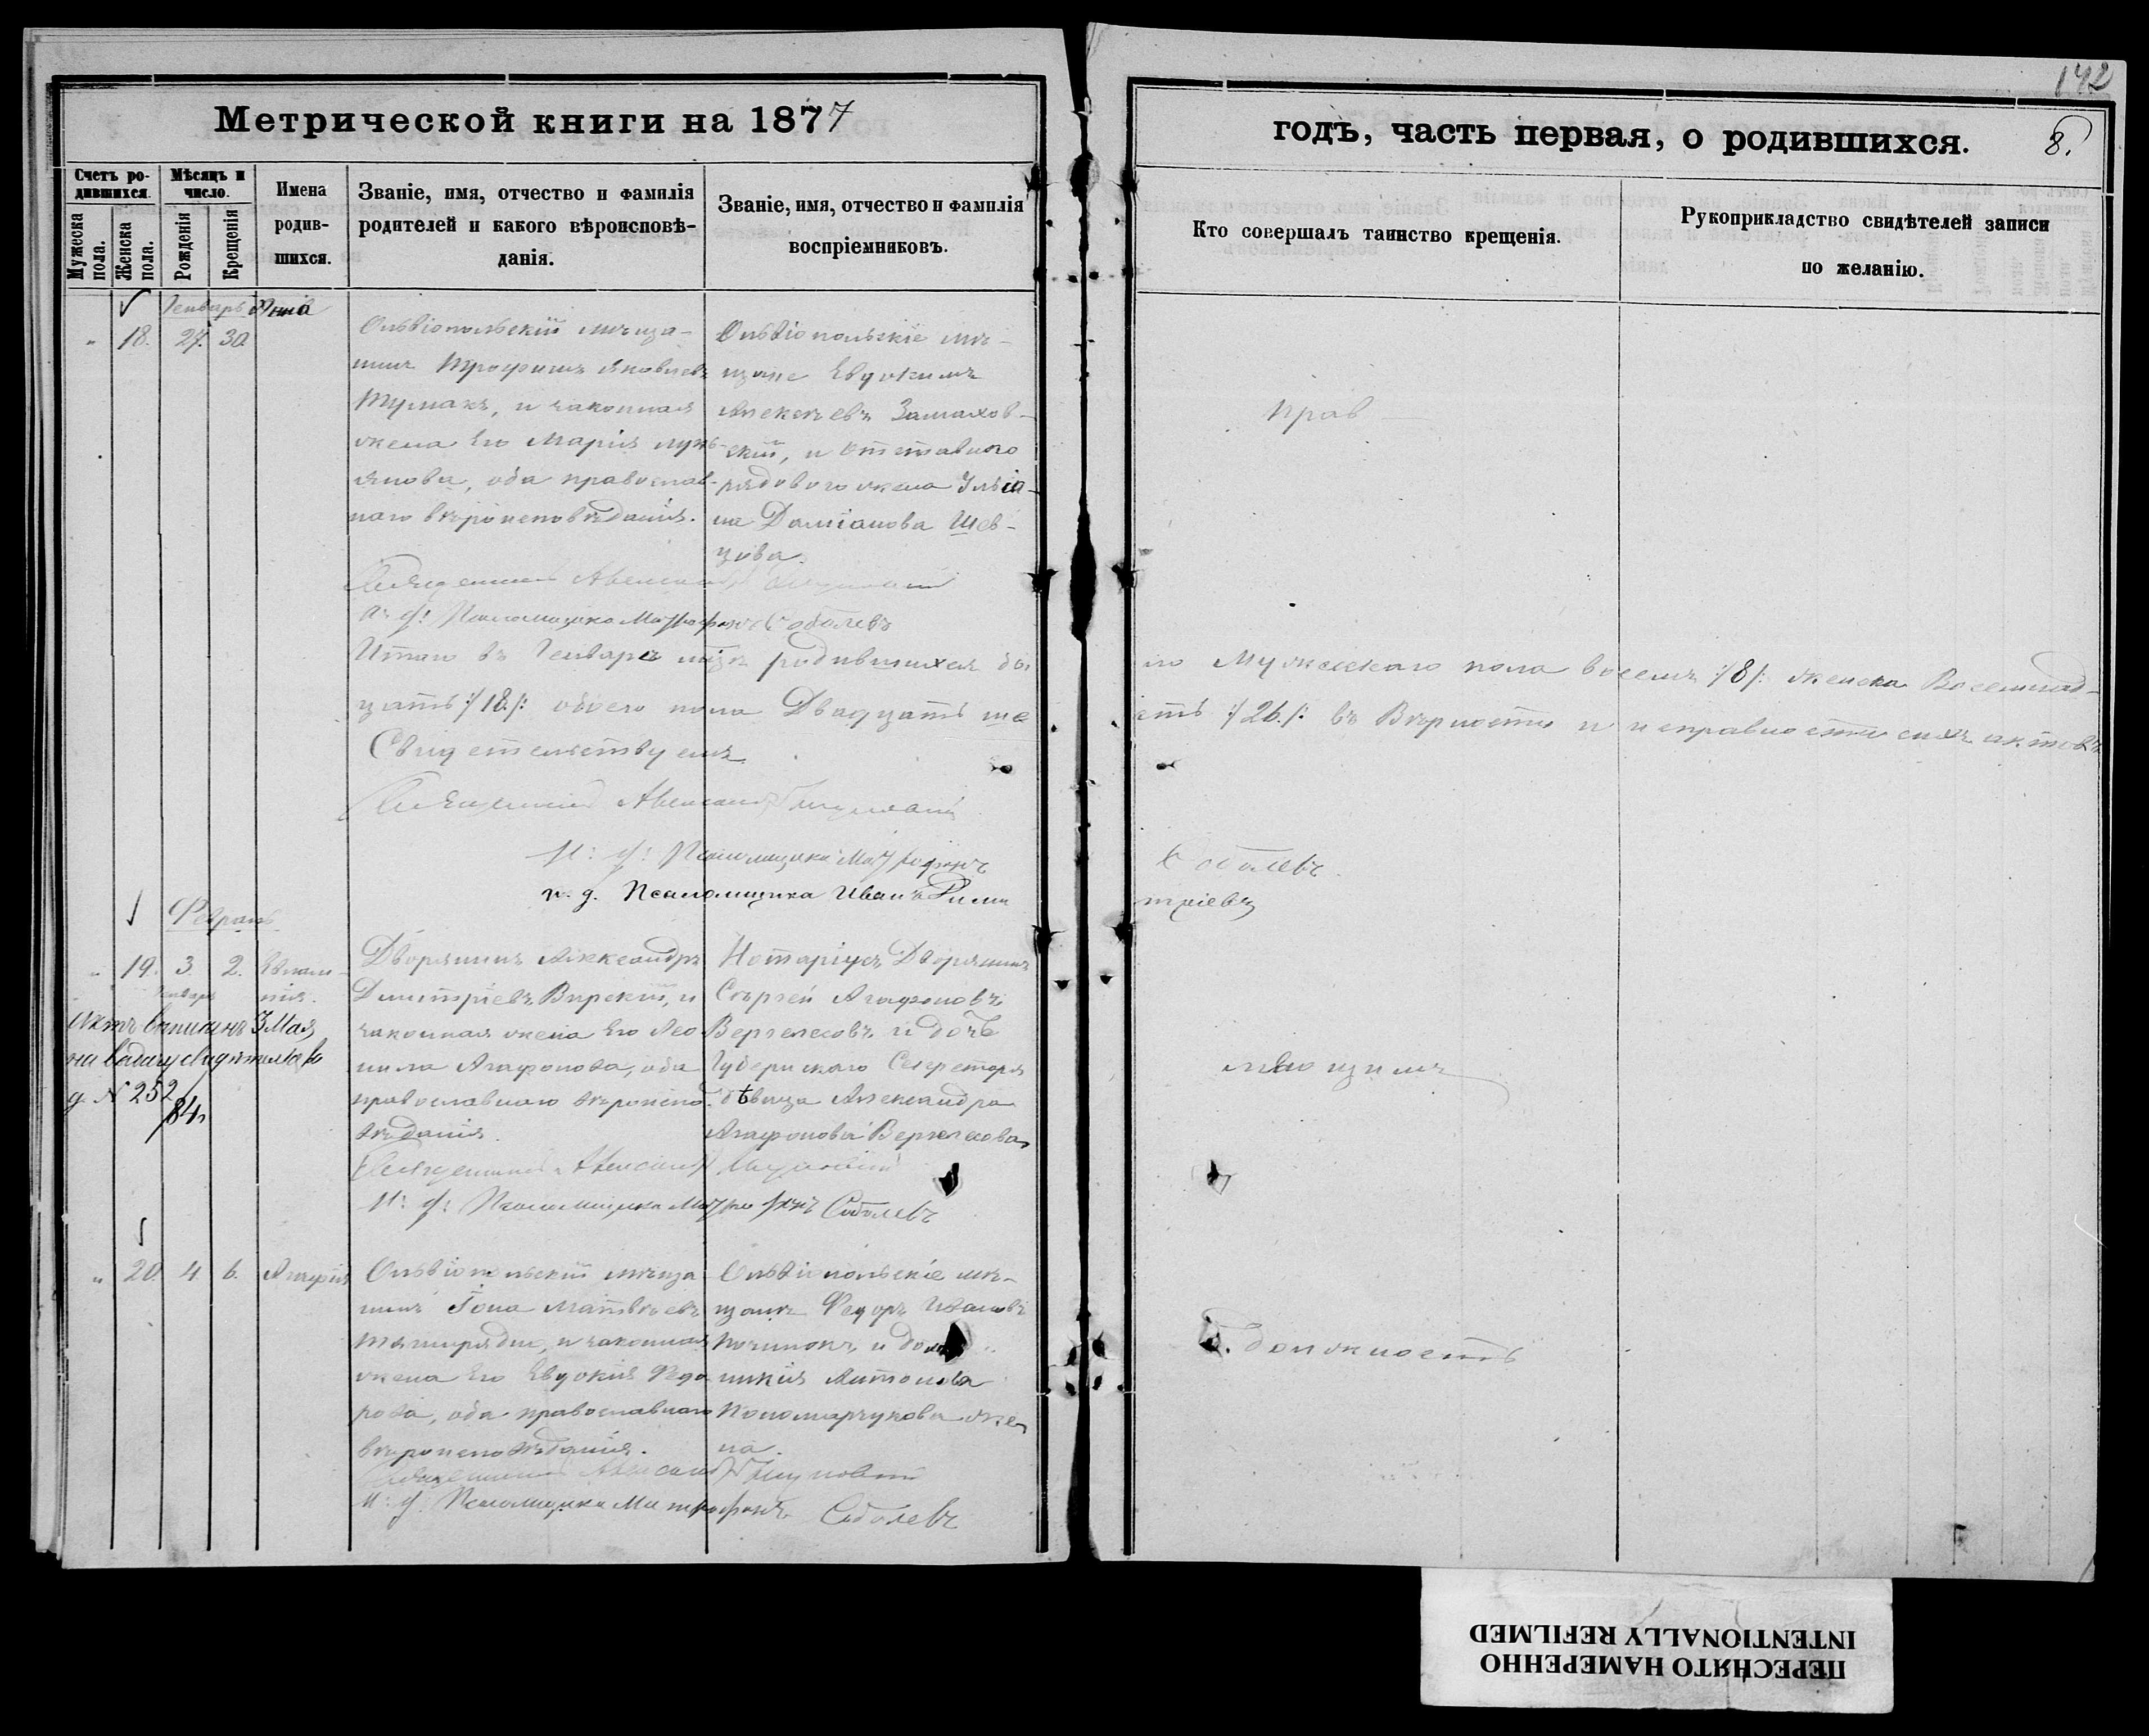 142
Метрической книги на 1877
годъ, часть первая, о родившихся. 8.
Счетъ родившихся.
Мѣсяцъ и число.
Мужеска пола.
Женска пола.
Рожденія
Крещенія
Имена родившихся.
Званіе, имя, отчество и фамилія
родителей и какого вѣроисповѣ-
данія.
Званіе, имя, отчество и фамилія
воспріемниковъ.
Кто совершалъ таинство крещенія.
Рукоприкладство свидѣтелей записи
по желанію.
Генварь
" 18. 27. 30.
Ольвіопольскій мѣща-
нинъ Трофимъ Яковлевъ
Турчакъ, и законная
жена Его Марія Лукь-
янова, оба православ-
наго вѣроисповѣданія.
Ольвіопольскіе мѣ-
щане Евдокимъ
Алексѣевъ Замахов-
скій, и отставного
рядового жена Ульіа-
на Даміанова Шев-
цова.
прав
Священникъ Александръ
и: д: Псаломщика Митрофанъ Соболевъ
Итого въ Генварѣ м-цѣ родившихся бы
ло Мужескаго пола восемь :/8/: женска Восемнад-
цать :/18/: обоего пола Двадцать ше
сть :/26./: въ Вѣрности и исправности сихъ актовъ
Свидетельствуемъ
Священникъ Александръ
И: д: Псаломщика Митрофанъ
Соболевъ.
и. д. Псаломщика Иванъ
Февраль
" 19. 3. 2. Евлам-
Генварь пія.
Актъ выписанъ 3 Мая
на выдачу свидѣтельства
д. N 252
84.
Дворянинъ Александръ
Димитріевъ Вирскій, и
законная жена Его Лео-
нила Агафонова, оба
православнаго вѣроиспо-
вѣданія.
Нотаріусъ Дворянинъ
Сергѣй Агафоновъ
Вергелесовъ и дочь
Губернскаго Секретаря
дѣвица Александра
Агафонова Вергелесова
Священникъ Александръ
И: д: Псаломщика Митрофанъ Соболевъ
" 20. 4. 6. Агафія
Ольвіопольскій мѣща-
нинъ Іона Матвѣевъ
и законная
жена Его Евдокія Федо-
рова, оба православнаго
вѣроисповѣданія.
Ольвіопольскіе мѣ-
щане Федоръ Ивановъ
Починокъ, и
Антонова
Пономарчукова же-
на.
должность
Священникъ Александръ
И: д: Псаломщика Митрофанъ Соболевъ
ПЕРЕСНЯТО НАМЕРЕННО
INTENTIONALLY REFILMED